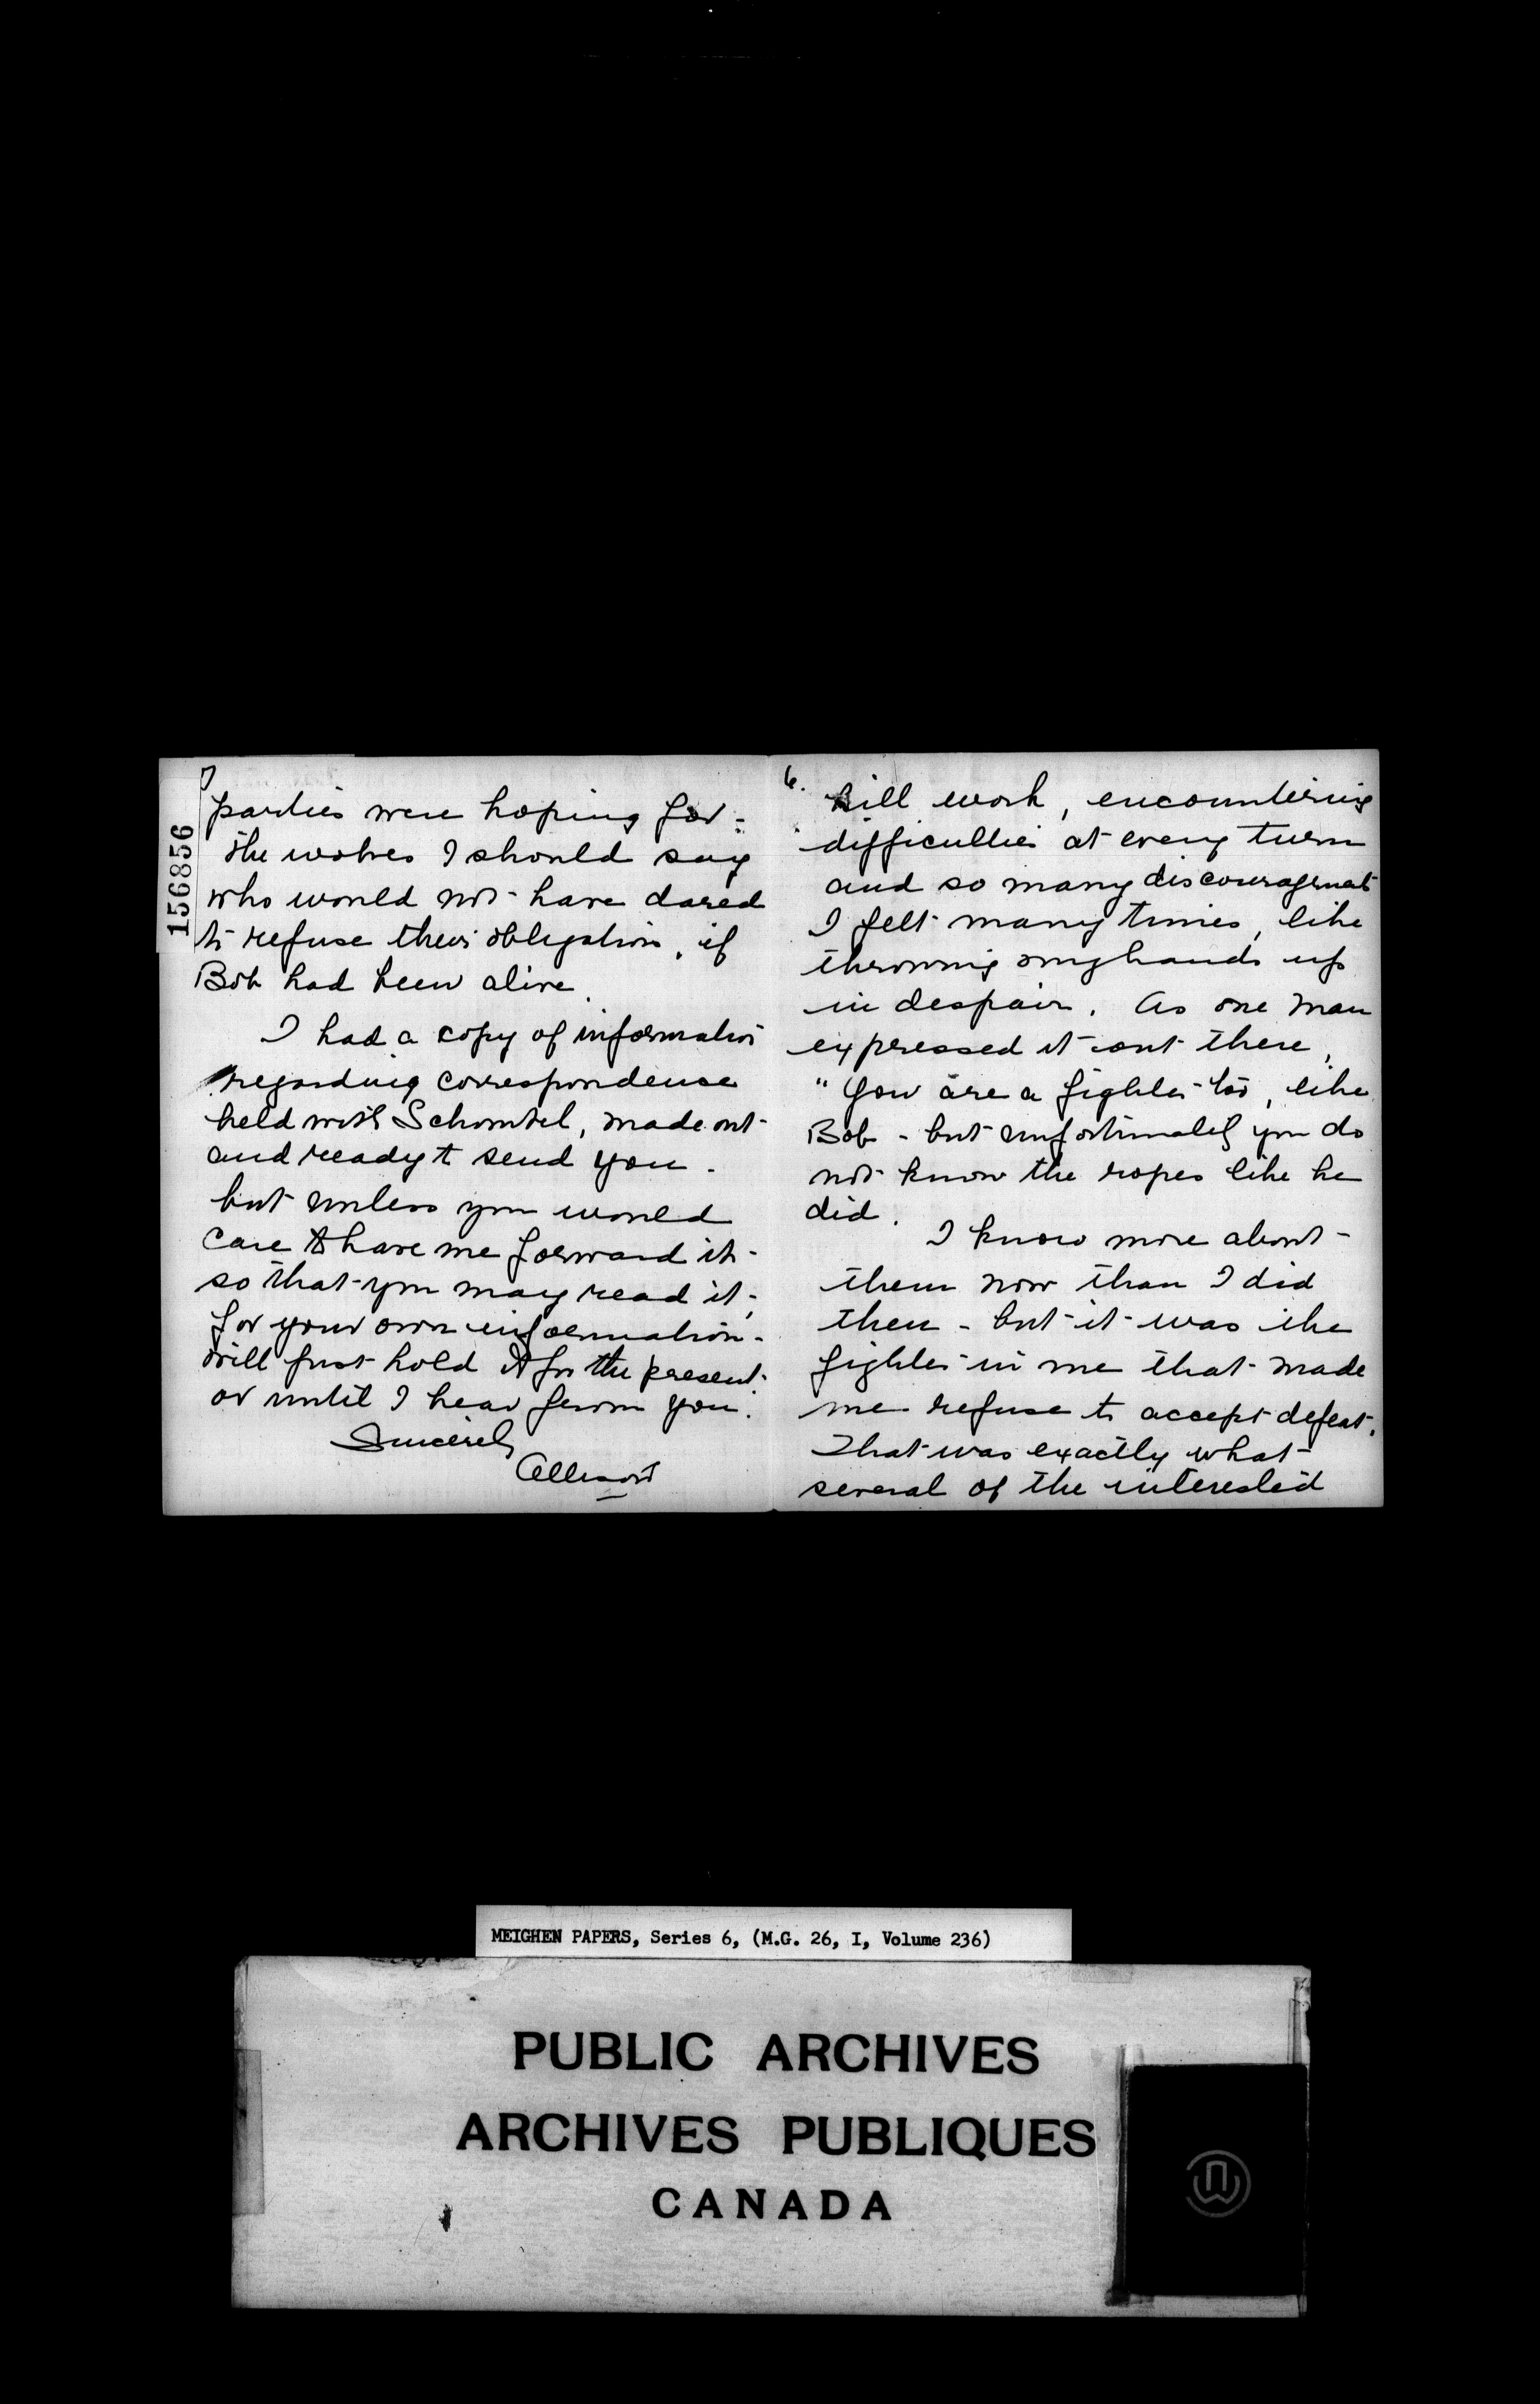 7
parties were hoping for -
the wolves I should say
who would not have dared
to refuse their obligation, if
Bob had been alive.
I had a copy of information
regarding correspondence
held with, made out
and ready to send you -
but unless you would
care to have me forward it -
so that you may read it,
for your own information -
will just hold it for the present
or until I hear from you.
Sincerely
Allison
156856
6.
hill work, encountering
difficulties at every turn
and so many discouragements
I felt many times, like
throwing my hands up
in despair. As one man
expressed it out there,
"You are a fighter too, like
Bob - but unfortunately you do
not know the ropes like he
did.
I know more about
them now than I did
then - but it was the
fighter in me that made
me refuse to accept defeat.
That was exactly what
several of the interested
MEIGHEN PAPERS, Series 6, (M.G. 26, I, Volume 236)
PUBLIC ARCHIVES
ARCHIVES PUBLIQUES
CANADA